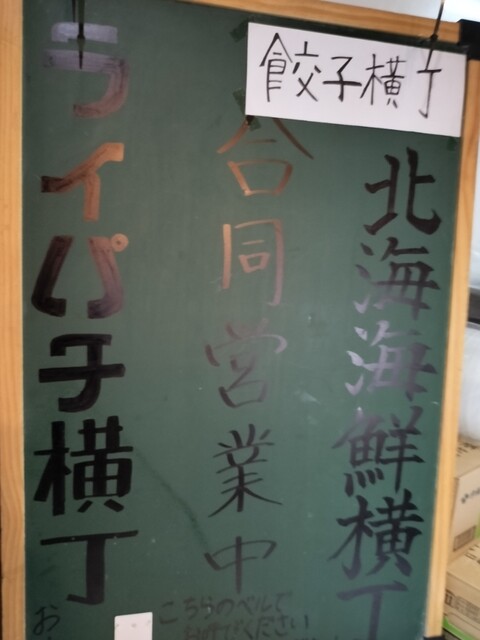 餃子横丁
北海海鮮横丁
合同営業中
ライパチ横丁
こちらのベルで
お呼びください
お